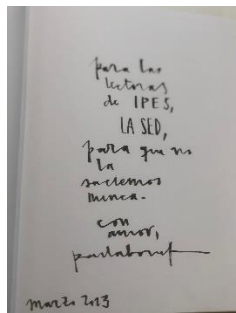 para las
lectoras
de IPES,
LA SED,
para que no
la
saciemos
nunca.
con
amor,
marzo 2023